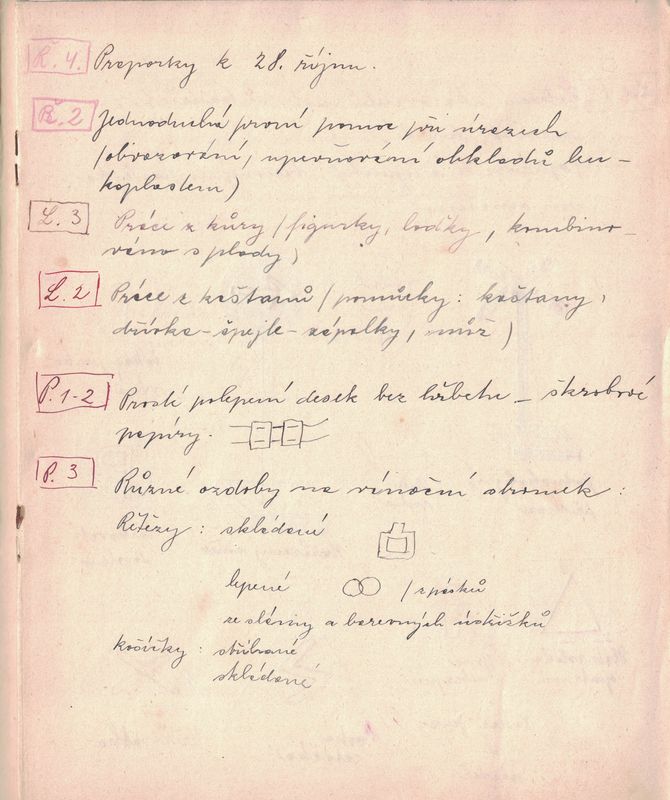 Ř. 4. Praporky k 28. říjnu.
Ř. 2 Jednoduchá první pomoc při úrazech
(obvazování, upevňování obkladů leu-
koplastem)
L. 3 Práce z kůry (figurky, loďky, kombino-
váno s plody)
L. 2 Práce z kaštanů (pomůcky: kaštany,
dřívka - špejle - zápalky, nůž)
P. 1-2 Prosté polepení desek bez hřbetu - škrobové
papíry.
P. 3 Různé ozdoby na vánoční stromek:
Řetězy: skládané
lepené (z pásků
ze slámy a barevných ústřižků
košíčky: stříhané
skládané